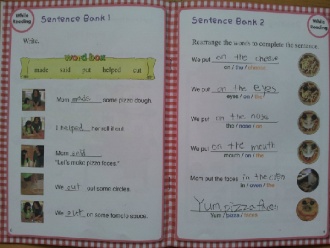 While Reading
Sentence Bank 1
Write.
word box
made said put helped cut
Mum made some pizza dough.
I helped her roll it out.
Mum said
"Let's make pizza faces."
We cut out some circles.
We put on some tomato sauce.
Sentence Bank 2
While Reading
Rearrange the words to complete the sentence.
We put on the cheese
on / the / cheese
We put on the eyes
eyes / on / the
We put on the nose
the / nose / on
We put on the mouth
mouth / on / the
Mum put the faces in the oven
in / oven / the
Yum pizza faces
Yum / pizza / faces